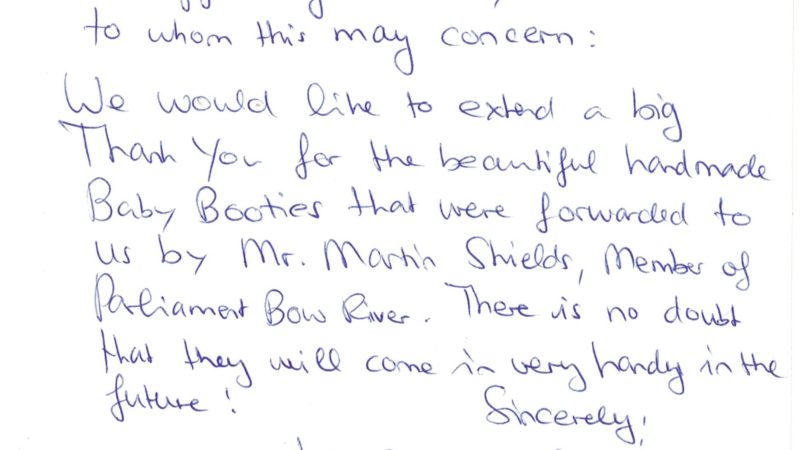 to whom this may concern:
We would like to extend a big
Thank You for the beautiful handmade
Baby Booties that were forwarded to
us by Mr. Martin Shields, Member of
Parliament Bow River. There is no doubt
that they will come in very handy in the
future!
Sincerely,